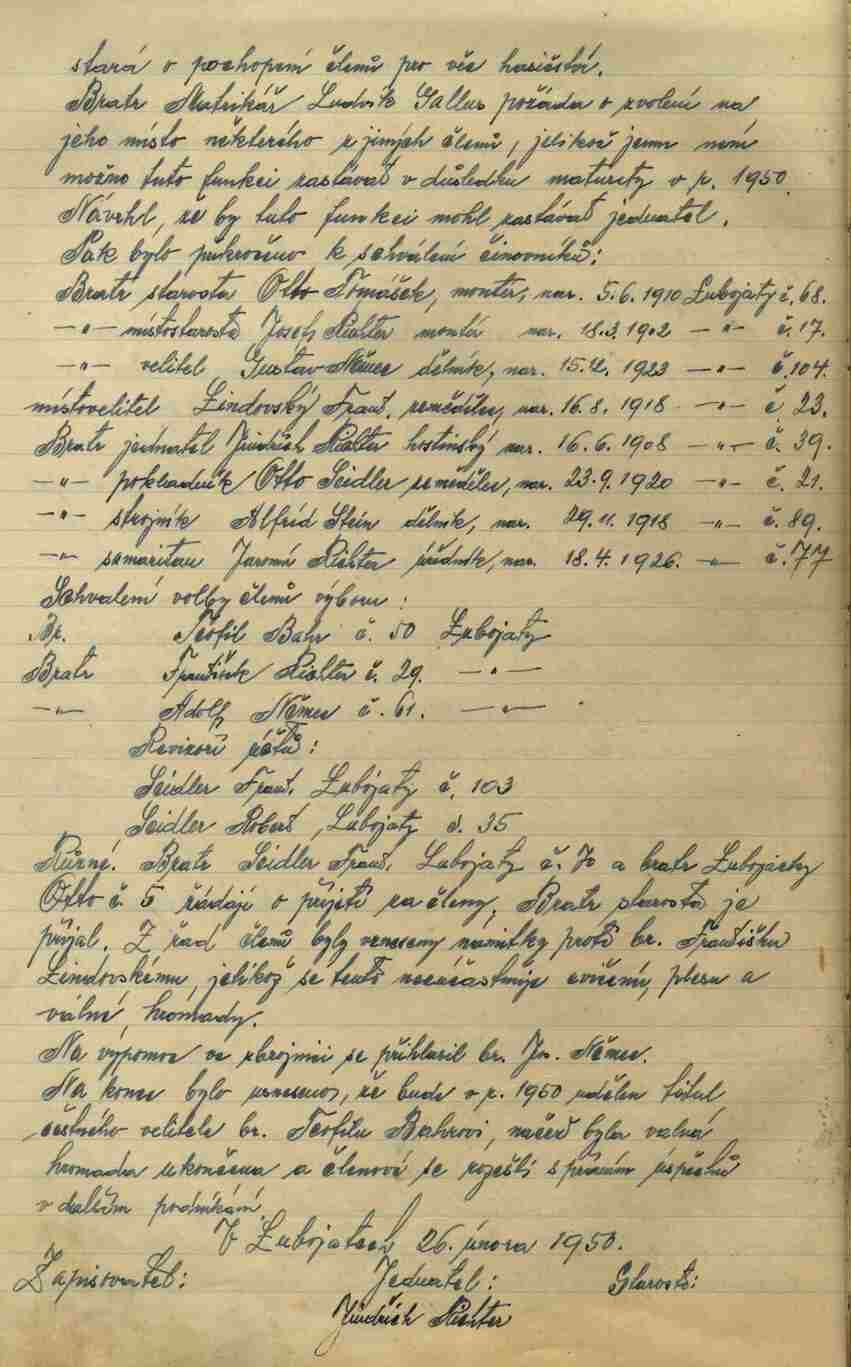 stará o pochopení členů pro věc hasičství.
Bratr Matrikář Ludvík Gallus požádal o zvolení na
jeho místo některého z jiných členů, jelikož jemu není
možno tuto funkci zastávat v důsledku maturity v r. 1950.
Návrhl, že by tuto funkci mohl zastávat jednatel.
Pak bylo přikročeno k schválení činovníků:
Bratr starosta Otto Tomášek, montér, nar. 5.6.1910 Lubojaty č. 68.
—"— místostarosta Josef Richter montér nar. 18.3.1902 —"— č. 17.
—"— velitel Gustav Němec dělník, nar. 15.12.1923 —"— č. 104.
místovelitel Lindovský Frant. zemědělec, nar. 16.8.1918 —"— č. 23.
Bratr jednatel Jindřich Richter hostinský nar. 16.6.1908 —"— č. 39.
—"— pokladník Otto Seidler zemědělec, nar. 23.9.1920 —"— č. 21.
—"— strojník Alfréd Stein dělník, nar. 29.11.1918 —"— č. 89.
—"— samaritan Jaromír Richter úředník, nar. 18.4.1926. —"— č. 77
Schvalení volby členů výboru:
Br. Teofil Bahr č. 50 Lubojaty
Bratr František Richter č. 29. —"—
—"— Adolf Němec č. 61. —"—
Revizoři účtů:
Seidler Frant. Lubojaty č. 103
Seidler Robert, Lubojaty č. 35
Různé. Bratr Seidler Frant. Lubojaty č. a bratr Lubojacky
Otto č. 5 žádají o přijetí za členy. Bratr starosta je
přijal. Z řad členů byly vzneseny námitky proti br. Františku
Lindovskému, jelikož se tento neúčastňuje cvičení, plesu a
valné hromady.
Na výpomoc ve zbrojnici se přihlásil br. Němec.
Na konec bylo usneseno, že bude v r. 1950 udělen titul
čestného velitele br. Teofilu Bahrovi, načež byla valná
hromada ukončena a členové se rozešli s přáním úspěchů
v dalším podnikání.
V Lubojatech 26. února 1950.
Zapisovatel: Jednatel: Starosta:
Jindřich Richter